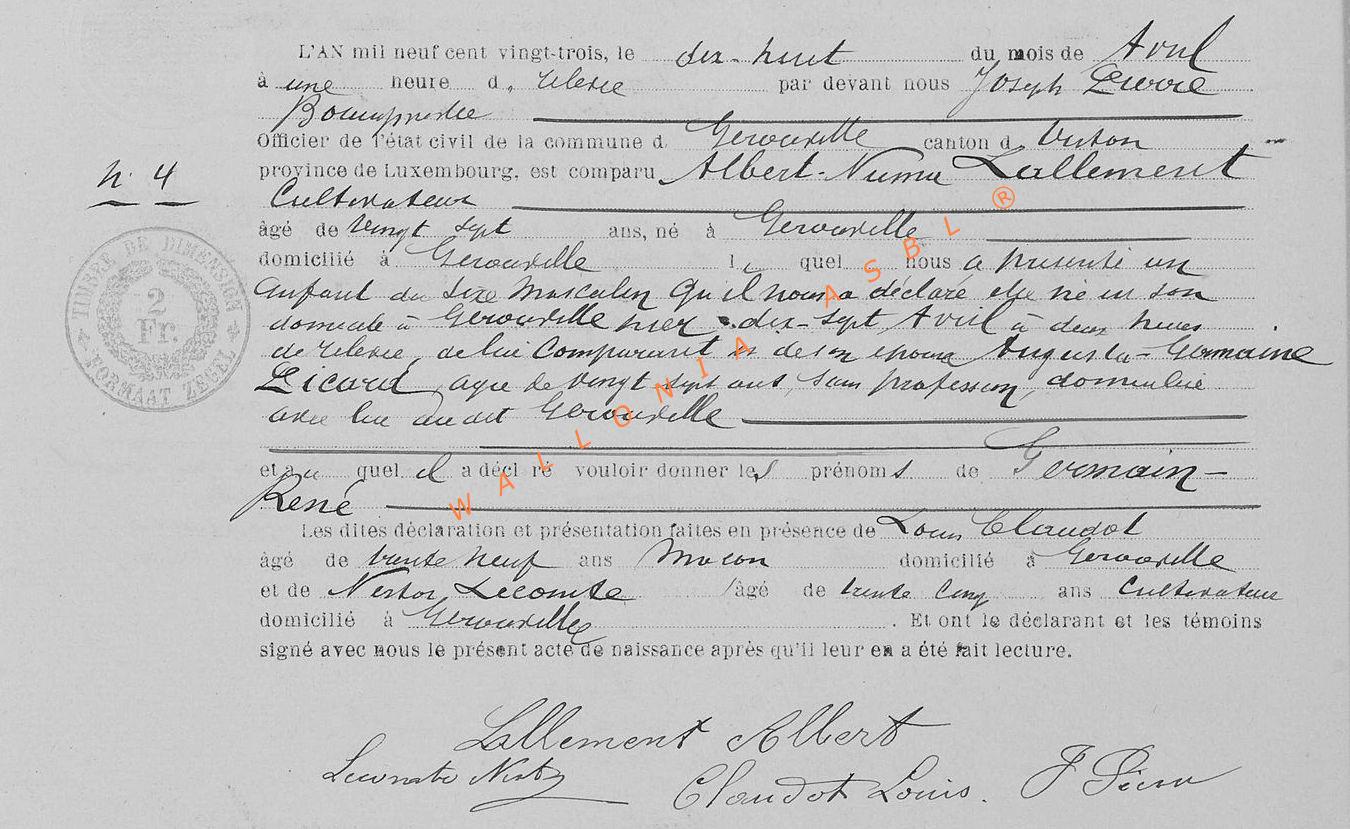 L'AN mil neuf cent vingt-trois, le dix-huit du mois de Avril
à une heure d. relevée par devant nous Joseph Pierre
Bourgmestre
Officier de l'état civil de la commune d. Gérouville canton d. Virton
province de Luxembourg, est comparu Albert-Numa Lallement
n. 4
Cultivateur
âgé de vingt sept ans, né à Gérouville
domicilié à Gérouville le quel nous a présenté un
enfant du sexe masculin qu'il nous a déclaré être né en son
domicile à Gérouville hier dix-sept Avril à deux heures
de relevée, de lui comparant et de son épouse Augusta-Germaine
Picard, agée de vingt sept ans, sans profession, domiciliée
avec lui au dit Gérouville
et au quel il a déclaré vouloir donner les prénoms de Germain-
René
Les dites déclaration et présentation faites en présence de Louis Claudot
âgé de trente neuf ans Maçon domicilié à Gérouville
et de Nestor Lecomte âgé de trente cinq ans Cultivateur
domicilié à Gérouville. Et ont le déclarant et les témoins
signé avec nous le présent acte de naissance après qu'il leur en a été fait lecture.
Lallement Albert
Lecomte Nestor
Claudot Louis. J Pierre
TIMBRE DE DIMENSION
2
Fr.
FORMAAT ZEGEL
WALLONIA ASBL ®